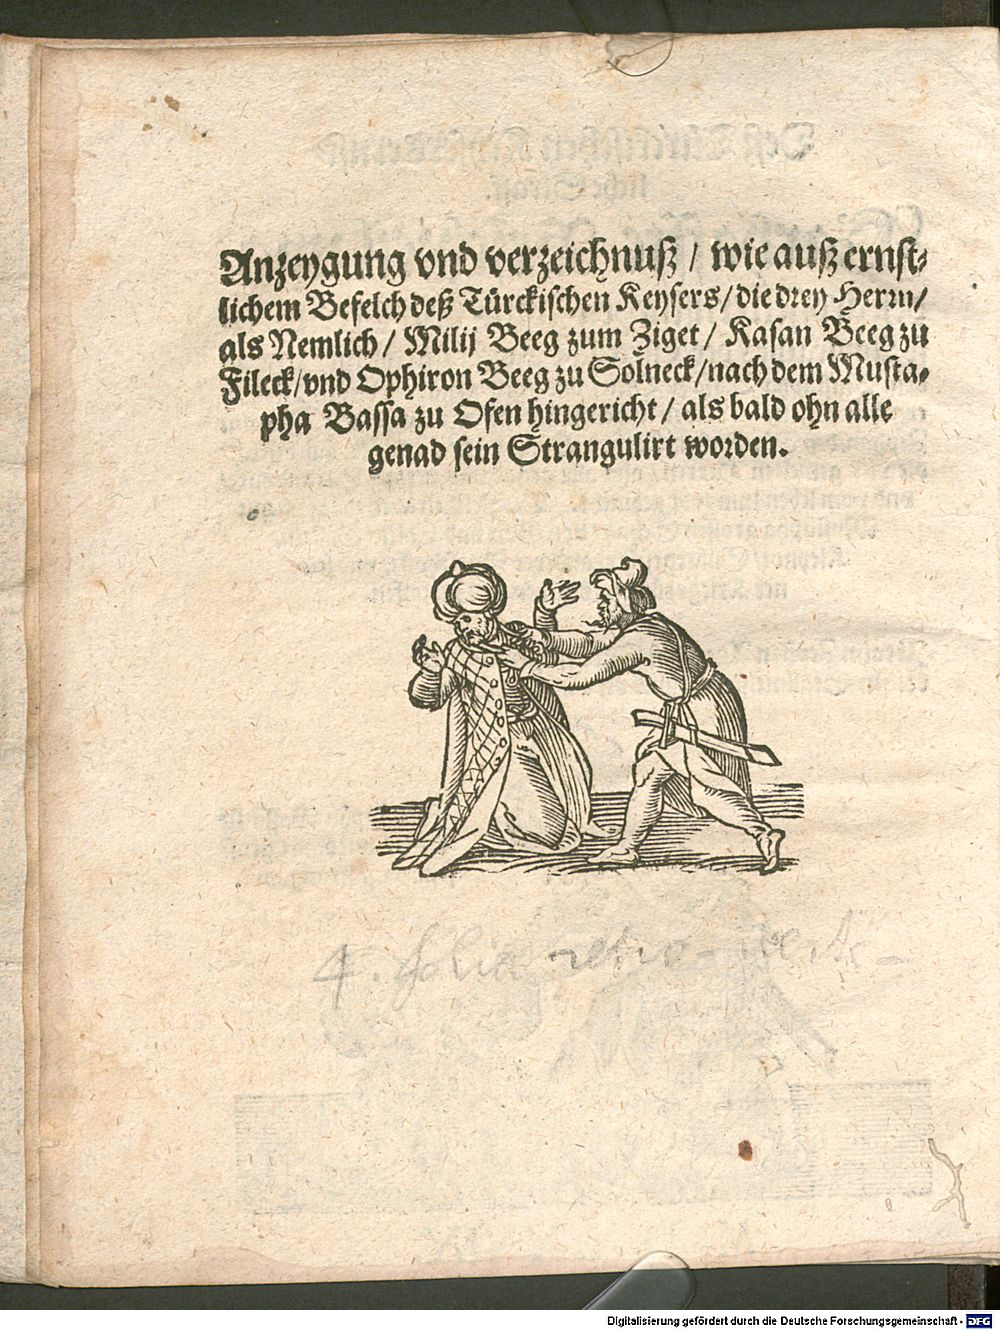 Anzeygung vnd verzeichnuß / wie auß ernst-
lichem Befelch deß Türckischen Keysers / die drey Herrn /
als Nemlich / Milij Beeg zum Ziget / Kasan Beeg zu
Fileck / vnd Ophiron Beeg zu Solneck / nach dem Musta-
pha Bassa zu Ofen hingericht / als bald ohn alle
genad sein Strangulirt worden.
4. folia
Digitalisierung gefördert durch die Deutsche Forschungsgemeinschaft - DFG